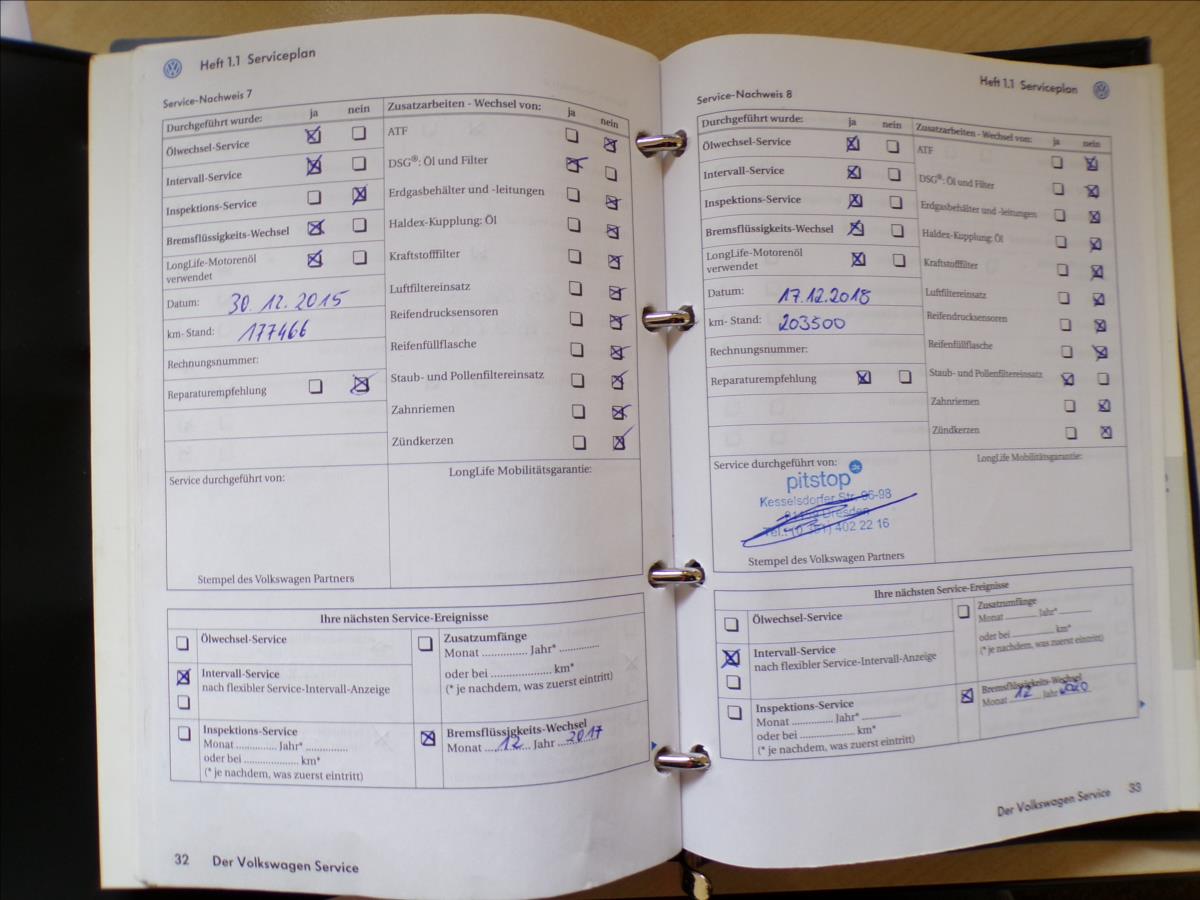 Heft 1.1 Serviceplan
Service-Nachweis 7
Durchgeführt wurde: ja nein
Ölwechsel-Service
Intervall-Service
Inspektions-Service
Bremsflüssigkeits-Wechsel
LongLife-Motorenöl
verwendet
Datum: 30.12.2015
km- Stand: 177466
Rechnungsnummer:
Reparaturempfehlung
Zusatzarbeiten - Wechsel von: ja nein
ATF
DSG®: Öl und Filter
Erdgasbehälter und -leitungen
Haldex-Kupplung: Öl
Kraftstofffilter
Luftfiltereinsatz
Reifendrucksensoren
Reifenfüllflasche
Staub- und Pollenfiltereinsatz
Zahnriemen
Zündkerzen
Service durchgeführt von:
Stempel des Volkswagen Partners
LongLife Mobilitätsgarantie:
Ihre nächsten Service-Ereignisse
Ölwechsel-Service
Intervall-Service
nach flexibler Service-Intervall-Anzeige
Inspektions-Service
Monat .............. Jahr* ..............
oder bei .................... km*
(* je nachdem, was zuerst eintritt)
Zusatzumfänge
Monat .............. Jahr* ..............
oder bei .................... km*
(* je nachdem, was zuerst eintritt)
Bremsflüssigkeits-Wechsel
Monat 12 Jahr 2017
32 Der Volkswagen Service
Heft 1.1 Serviceplan
Service-Nachweis 8
Durchgeführt wurde: ja nein
Ölwechsel-Service
Intervall-Service
Inspektions-Service
Bremsflüssigkeits-Wechsel
LongLife-Motorenöl
verwendet
Datum: 17.12.2018
km- Stand: 203500
Rechnungsnummer:
Reparaturempfehlung
Zusatzarbeiten - Wechsel von: ja nein
ATF
DSG®: Öl und Filter
Erdgasbehälter und -leitungen
Haldex-Kupplung: Öl
Kraftstofffilter
Luftfiltereinsatz
Reifendrucksensoren
Reifenfüllflasche
Staub- und Pollenfiltereinsatz
Zahnriemen
Zündkerzen
Service durchgeführt von:
pitstop
Kesselsdorfer Str. 96-98
Dresden
Tel.: (0 351) 402 22 16
Stempel des Volkswagen Partners
LongLife Mobilitätsgarantie:
Ihre nächsten Service-Ereignisse
Ölwechsel-Service
Intervall-Service
nach flexibler Service-Intervall-Anzeige
Inspektions-Service
Monat .............. Jahr* ..............
oder bei .................... km*
(* je nachdem, was zuerst eintritt)
Zusatzumfänge
Monat .............. Jahr* ..............
oder bei .................... km*
(* je nachdem, was zuerst eintritt)
Bremsflüssigkeits-Wechsel
Monat 12 Jahr 2020
Der Volkswagen Service 33